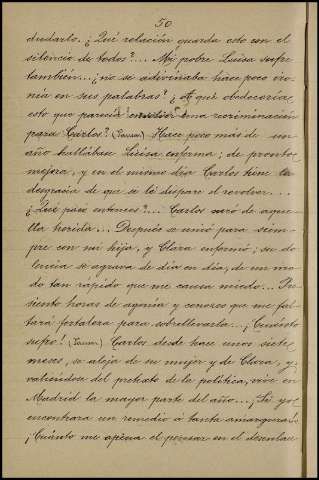 50
dudarlo. ¿Qué relación guarda esto con el
silencio de todos?.... Mi pobre Luisa sufre
también.... ¿no se adivinaba hace poco iro-
nía en sus palabras? ¿A qué obedecería
esto que parecía envolver una recriminación
para Carlos? (Pausa) Hace poco más de un
año hallábase Luisa enferma; de pronto
mejora, y en el mismo dia Carlos tiene la
desgracia de que se le dispare el revolver....
¿Qué pasó entonces?... Carlos curó de aque-
lla herida... Después se unió para siem-
pre con mi hija, y Clara enfermó; su do-
lencia se agrava de dia en dia; de un mo-
do tan rápido que me causa miedo... Pre-
siento horas de agonía y conozco que me fal-
tará fortaleza para sobrellevarla... ¡Cuánto
sufro! (Pausa) Carlos desde hace unos siete
meses, se aleja de su mujer y de Clara, y,
valiéndose del pretexto de la política, vive en
Madrid la mayor parte del año... ¡Si yo
encontrara un remedio á tanta amargura!
¡Cuánto me apena el pensar en el desenlace